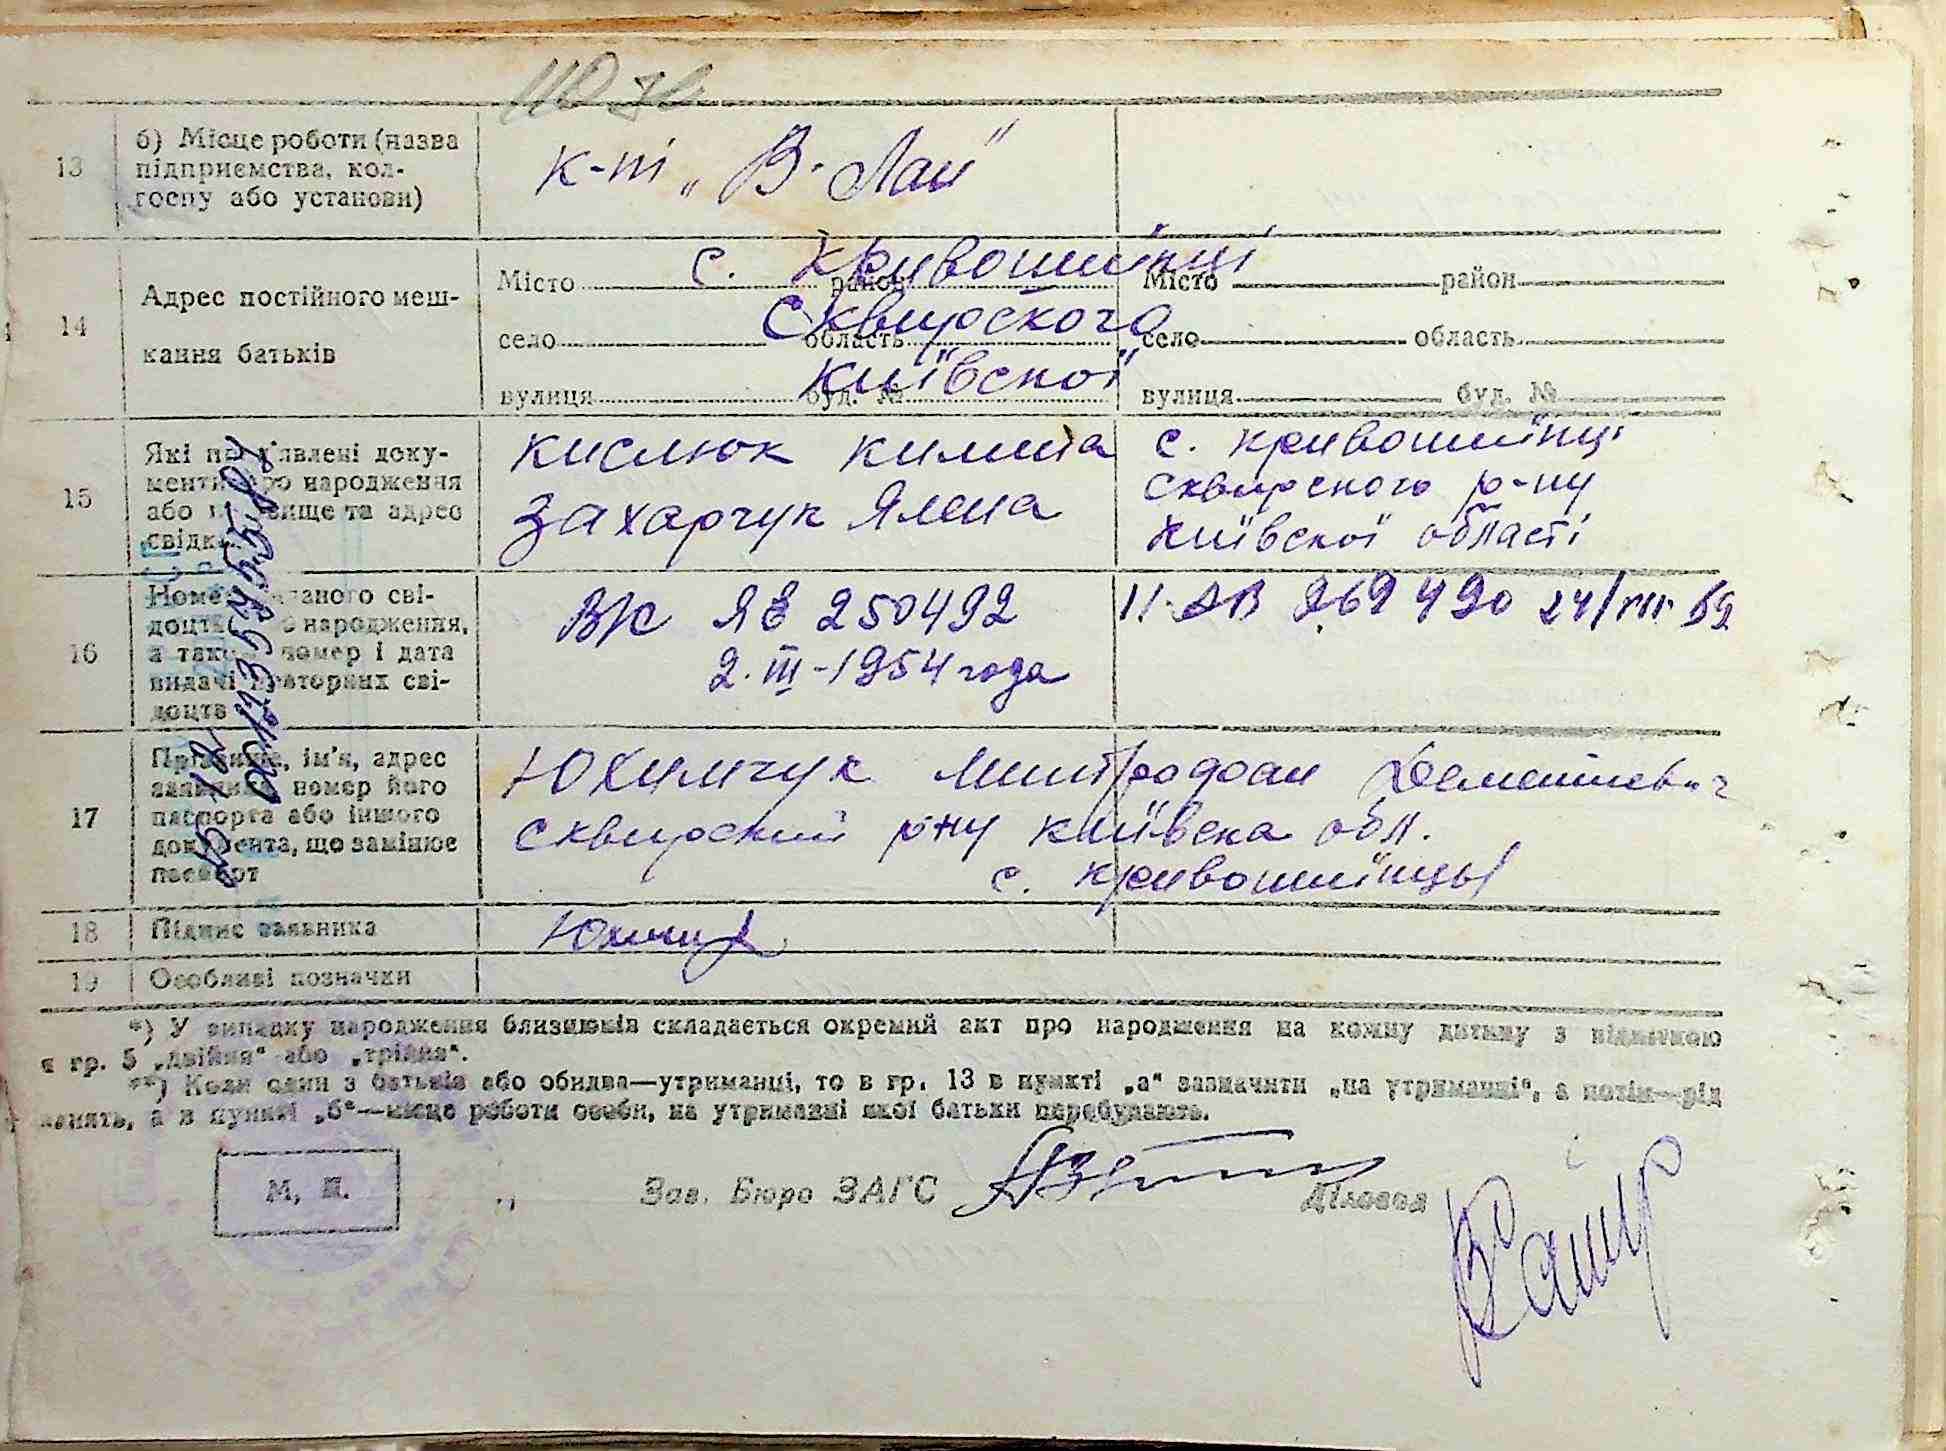 13
б) Місце роботи (назва
підприємства, кол-
госпу або установи)
к-пі „В-Лан"
14
Адрес постійного меш-
кання батьків
Місто район
с. Кривошиїнці
село область
Сквирского
вулиця буд. №
Київскої
Місто район
село область
вулиця буд. №
15
Які пред'явлені доку-
менти про народження
або прізвище та адрес
свідків
Кислюк
Захарчук
с. Кривошиїнці
Сквирского р-ну
Київскої області
16
Номер виданого сві-
доцтва про народження,
а також номер і дата
видачі повторних сві-
доцтв
ЯЕ 250492
2. III-1954 года
269490 24/VIII 59
17
Прізвище, ім'я, адрес
заявника, номер його
паспорта або іншого
документа, що замінює
паспорт
Юхимчук
Сквирский р-ну Київска обл.
с. Кривошиїнцы
18
Підпис заявника
19
Особливі позначки
*) У випадку народження близнюків складається окремий акт про народження на кожну дитину з відміткою
в гр. 5 „двійня" або „трійня".
**) Коли один з батьків або обидва—утриманці, то в гр. 13 в пункті „а" зазначити „на утриманні", а потім—рід
занять, а в пункті „б"—місце роботи особи, на утриманні якої батьки перебувають.
М. П.
Зав. Бюро ЗАГС
Діловод